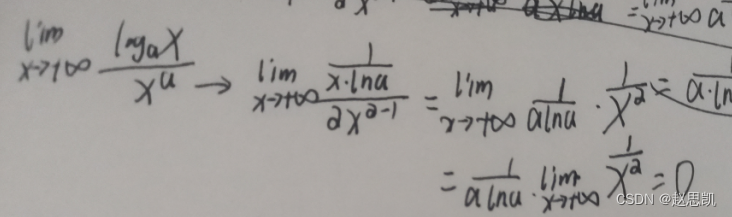 lim x→+∞ log_a x / x^a → lim x→+∞ (1 / (x·lna)) / (ax^(a-1)) = lim x→+∞ 1 / (alna) · 1 / x^a = 1 / (a·ln
= 1 / (alna) · lim x→+∞ 1 / x^a = 0
CSDN @赵思凯